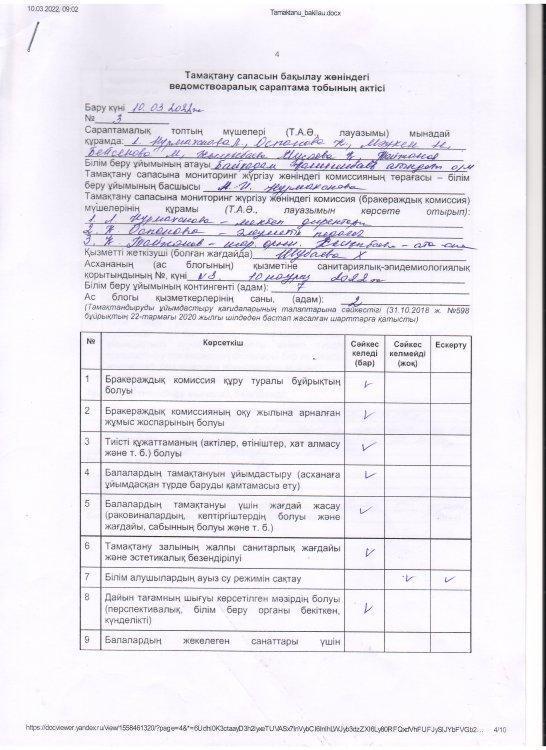 10.03.2022, 09:02 Tamaktanu_bakilau.docx
4
Тамақтану сапасын бақылау жөніндегі
ведомствоаралық сараптама тобының актісі
Бару күні 10.03.2022ж
№ 3
Сараптамалық топтың мүшелері (Т.А.Ә., лауазымы) мынадай
құрамда: 1. Нурмаханова Л, Оспанова Н,
Бейсенова М,
Білім беру ұйымының атауы
Тамақтану сапасына мониторинг жүргізу жөніндегі комиссияның терағасы – білім
беру ұйымының басшысы Нурмаханова
Тамақтану сапасына мониторинг жүргізу жөніндегі комиссия (бракераждық комиссия)
мүшелерінің құрамы (Т.А.Ә., лауазымын көрсете отырып):
1. Л Нурмаханова – мектеп директоры
2. Н Оспанова – әлеуметтік педагог
3.
Қызметті жеткізуші (болған жағдайда) Х
Асхананың (ас блогының) қызметіне санитариялық-эпидемиологиялық
қорытындының №, күні №3. 10 наурыз 2022ж
Білім беру ұйымының контингенті (адам): 7
Ас блогы қызметкерлерінің саны, (адам): 2
(Тамақтандыруды ұйымдастыру қағидаларының талаптарына сәйкестігі (31.10.2018 ж. №598
бұйрықтың 22-тармағы 2020 жылғы шілдеден бастап жасалған шарттарға қатысты)
№ Көрсеткіш Сәйкес келеді (бар) Сәйкес келмейді (жоқ) Ескерту
1 Бракераждық комиссия құру туралы бұйрықтың
болуы
2 Бракераждық комиссияның оқу жылына арналған
жұмыс жоспарының болуы
3 Тиісті құжаттаманың (актілер, өтініштер, хат алмасу
және т. б.) болуы
4 Балалардың тамақтануын ұйымдастыру (асханаға
ұйымдасқан түрде баруды қамтамасыз ету)
5 Балалардың тамақтануы үшін жағдай жасау
(раковиналардың, кептіргіштердің болуы және
жағдайы, сабынның болуы және т. б.)
6 Тамақтану залының жалпы санитарлық жағдайы
және эстетикалық безендірілуі
7 Білім алушылардың ауыз су режимін сақтау
8 Дайын тағамның шығуы көрсетілген мәзірдің болуы
(перспективалық, білім беру органы бекіткен,
күнделікті)
9 Балалардың жекелеген санаттары үшін
4/10